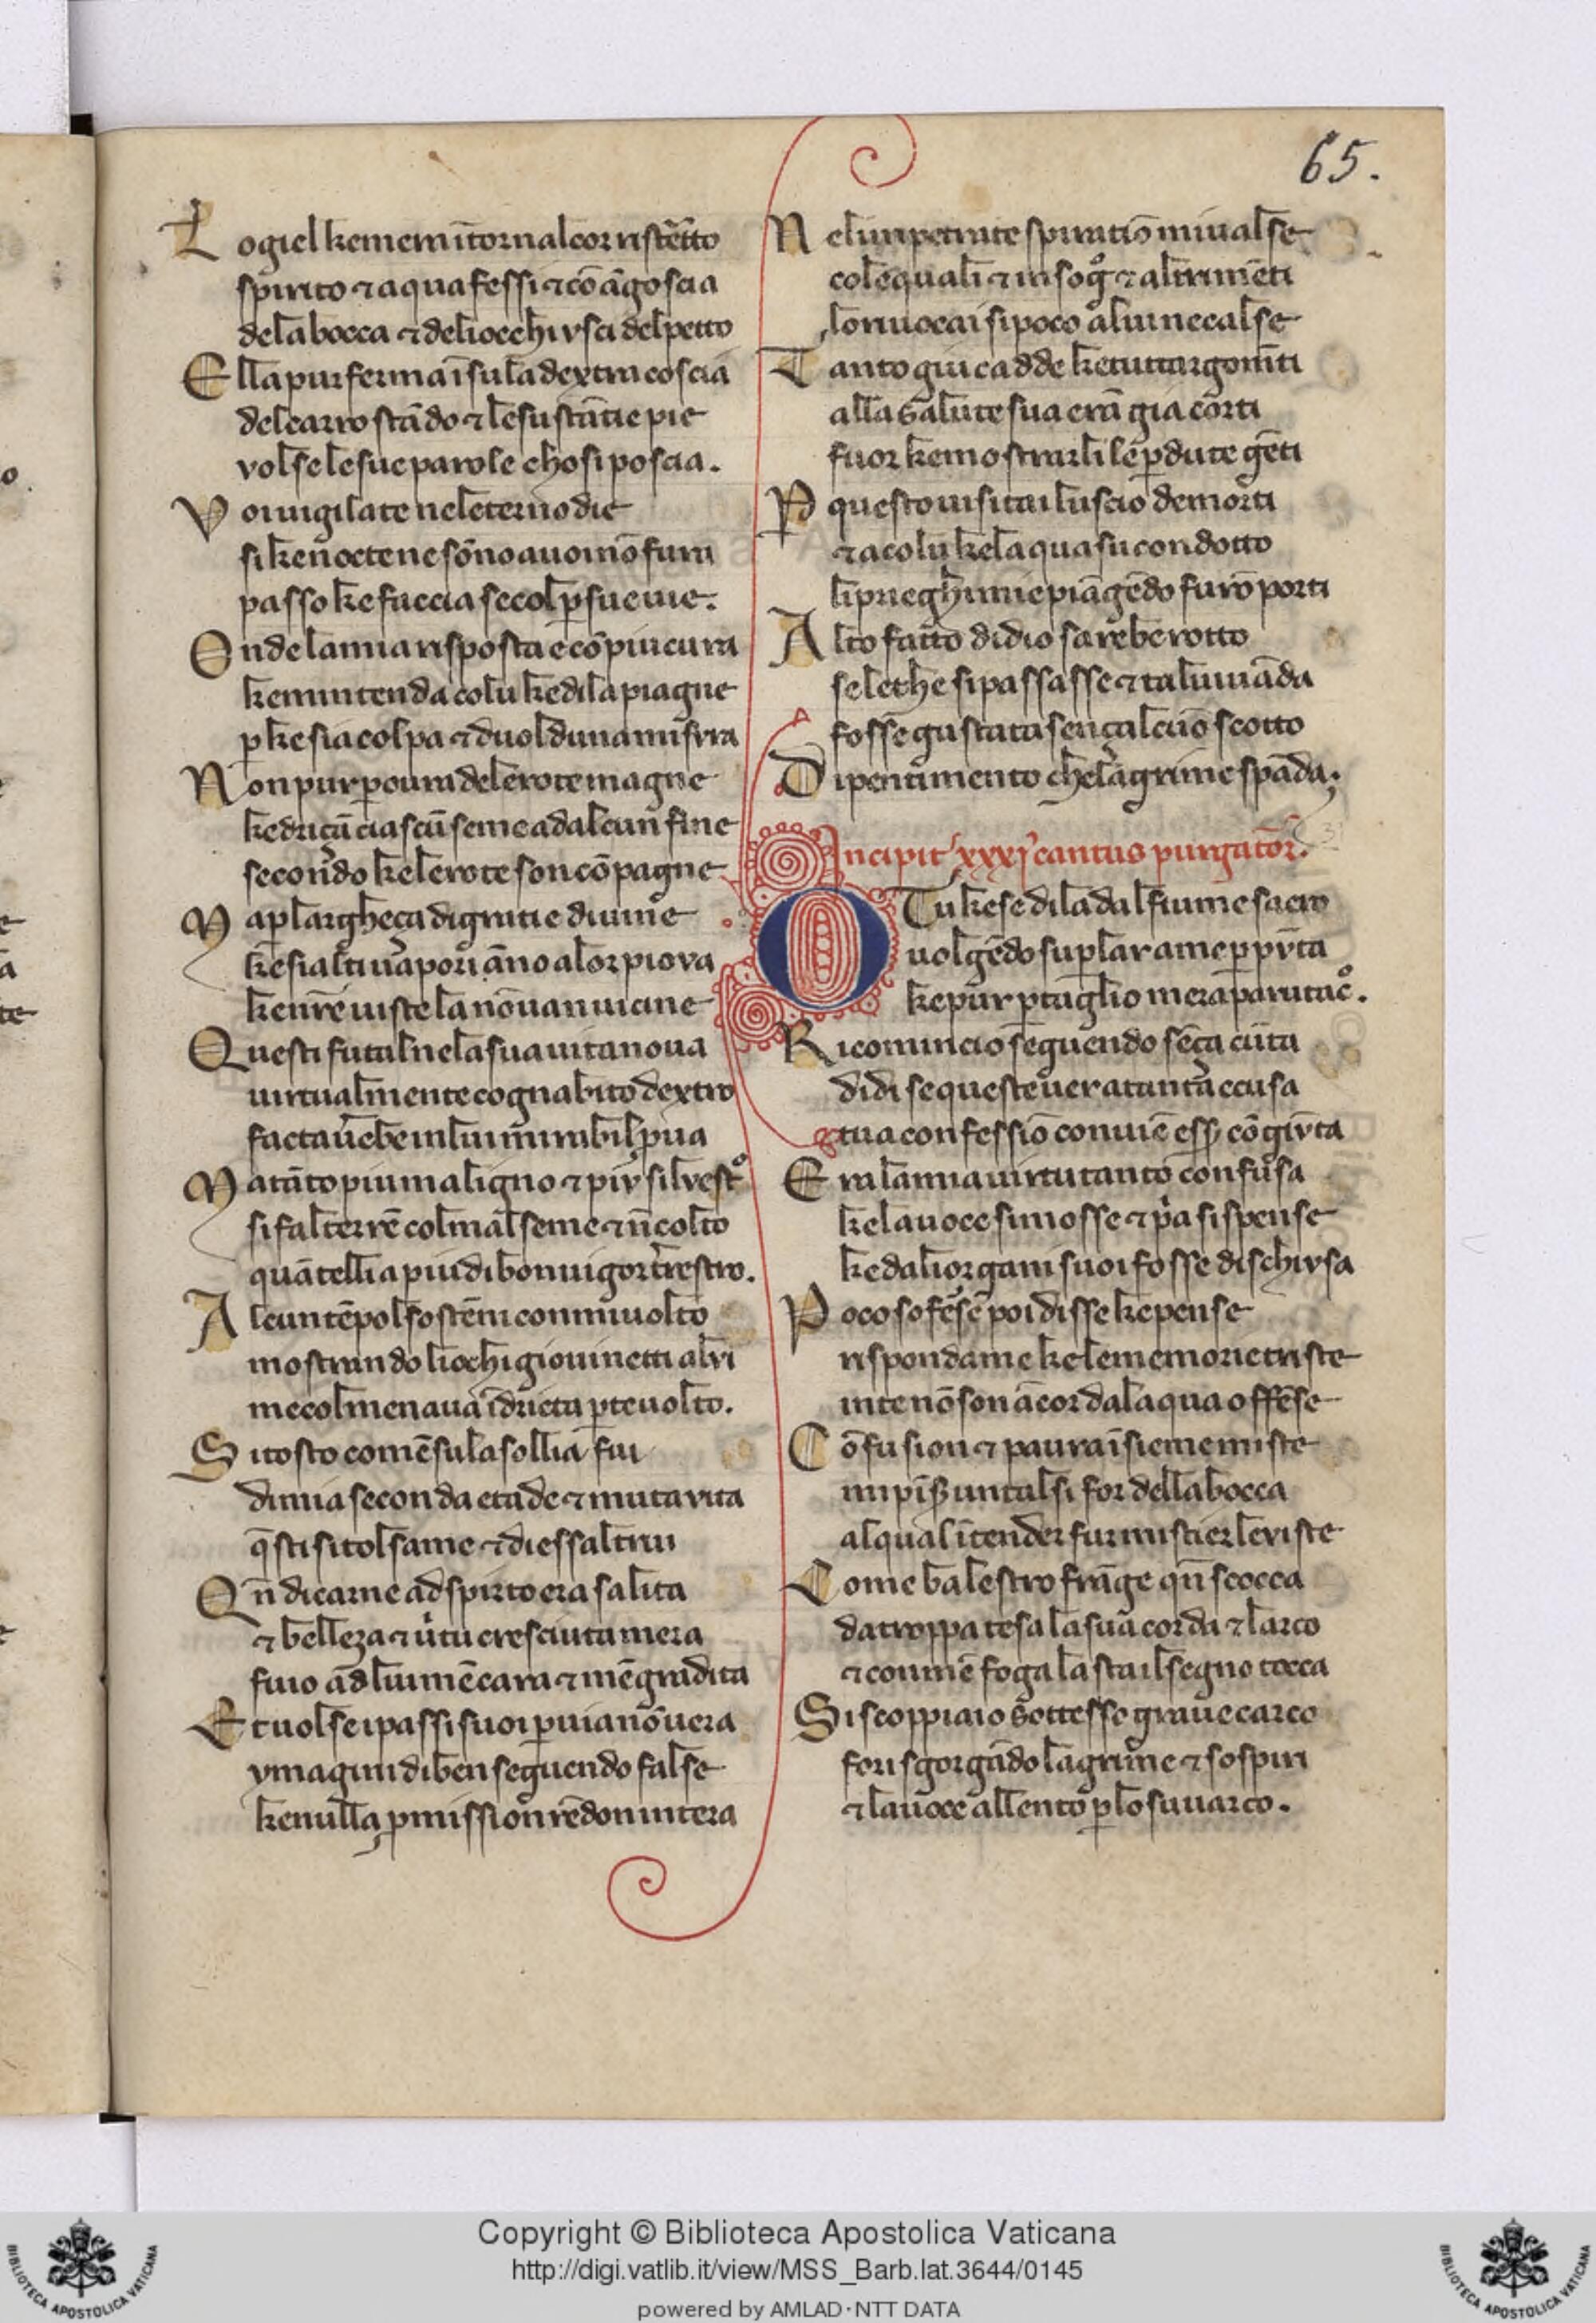 65.
Logiel kemem ĩtornal cor ristretto
spirito ⁊ aqua fessi ⁊ cõ ãgoscia
dela bocca ⁊ deli occhi vsci del petto
Ella pur ferma ĩ sula dextra coscia
del carro stãdo ⁊ le sustãtie pie
volse le sue parole chosi poscia.
Voi uigilate nel eterno die
si ke nocte ne sõno a uoi nõ fura
passo ke faccia secol p̱ sue uie.
Onde la mia risposta e cõ piu cura
ke mintenda colu ke di la piagne
p̱ke sia colpa ⁊ duol duna misvra
Non pur p̱ oura dele rote magne
ke driçã ciascũ seme ad alcun fine
secondo ke le rote son cõpagne
Ma p̱ largheça di gratie diuine
ke si alti uapori ãno a lor piova
ke nr̃e uiste la nõ uan uicine
Questi fu tal nela sua uita nova
uirtualmente cognabito dextro
facta uerebe in lui mirabil pua
Ma tãto piu maligno ⁊ piv silvestº
si fal terrẽ col mal seme ⁊ ñ colto
quãtelli a piu di bon uigor terrestro.
Alcun tẽpo l sostẽni con mi uolto
mostrando li ochi giouinetti a lvi
meco l menaua ĩ dricta p̱te uolto.
Si tosto come ĩ su la sollia fui
di mia seconda etade ⁊ mutai vita
q̃sti si tolse a me ⁊ diessi altrui
Qñ di carne ad spirto era salita
⁊ belleza ⁊ u̾tu cresciuta mera
fu io ad lui mẽ cara ⁊ mẽ gradita
Et uolse i passi suoi p̱ uia nõ uera
ymagini di ben seguendo false
ke nulla p̱mission rẽdon intera
Ne limpetrare spiratiõ mi ualse
col e quali ⁊ in sogº ⁊ altrimẽti
lo riuocai si poco a lui ne calse
Tanto giu cadde ke tutti argomẽti
alla salute sua erã gia corti
fuor ke mostrarli le p̱dute gẽti
P̱ questo uisitai luscio de morti
⁊ a colu ke la qua su condotto
li prieghi mie piãgẽdo furõ porti
Alto fatto di dio sarebe rotto
se lethe si passasse ⁊ tal uiuãda
fosse gustata sença alcuõ scotto
Di pentimento che lagrime spãda.
Incipit xxxj cantus purgator̃.
O Tu ke se di la dal fiume sacro
uolgẽdo su p̱lar a me p̱ pvta
ke pur p̱ taglio mera paruta cº.
Ricomincio seguendo sẽça cũta
di di se queste uer a tanta accusa
tua confession conuiẽ ess̾ cõgivta
Era la mia uirtu tanto confusa
ke la uoce si mosse ⁊ p̾a si spense
ke dali organi suoi fosse dischivsa
Poco soferse poi disse ke pense
rispond a me ke le memorie triste
in te nõ son ãcor dal aqua offẽse
Cõfusion ⁊ paura ĩsieme miste
mi pĩs̾ un tal si for della bocca
al qual ĩtender fur mistier le viste
Come balestro frãge qñ scocca
da troppa tesa la sua corda ⁊ larco
⁊ con mẽ foga lasta il segno tocca
Si scoppia io sottesso graue carco
fori sgorgãdo lagrime ⁊ sospiri
⁊ la uoce allento p̱ lo su uarco.
Copyright © Biblioteca Apostolica Vaticana
http://digi.vatlib.it/view/MSS_Barb.lat.3644/0145
powered by AMLAD·NTT DATA
BIBLIOTECA APOSTOLICA VATICANA
BIBLIOTECA APOSTOLICA VATICANA